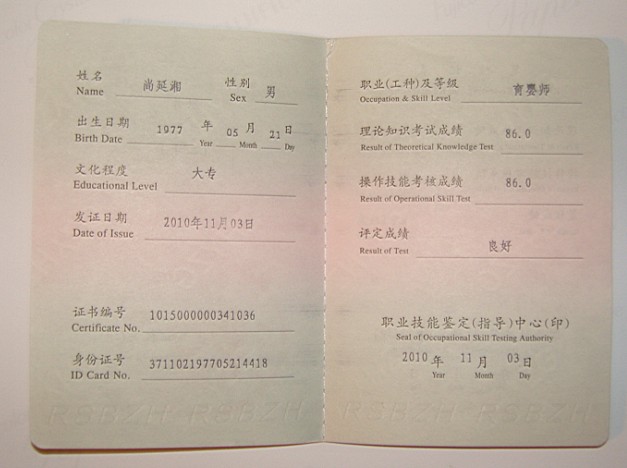 姓名 尚延湘 性别 男
Name Sex
出生日期 1977 年 05 月 21 日
Birth Date Year Month Day
文化程度 大专
Educational Level
发证日期 2010年11月03日
Date of Issue
证书编号 1015000000341036
Certificate No.
身份证号 371102197705214418
ID Card No.
RSBZH RSBZH
职业(工种)及等级 育婴师
Occupation & Skill Level
理论知识考试成绩 86.0
Result of Theoretical Knowledge Test
操作技能考核成绩 86.0
Result of Operational Skill Test
评定成绩 良好
Result of Test
职业技能鉴定(指导)中心(印)
Seal of Occupational Skill Testing Authority
2010 年 11 月 03 日
Year Month Day
RSBZH RSBZH